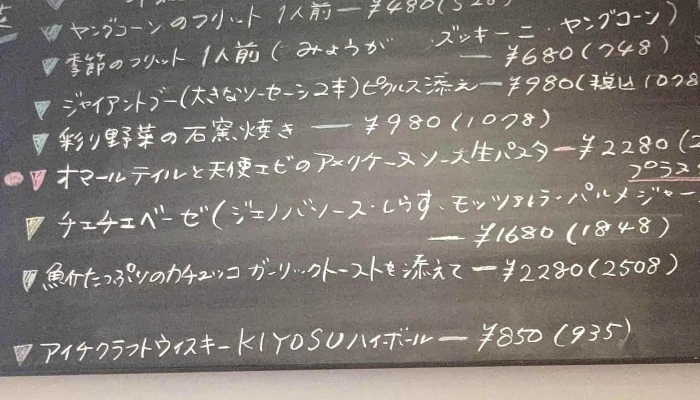 ヤングコーンのフリット 1人前 ー ¥480(528)
季節のフリット 1人前 ( みょうが ズッキーニ・ヤングコーン)
ー ¥680(748)
ジャイアントブー(大きなソーセージ2本)ピクルス添え ー ¥980(税込1078
彩り野菜の石窯焼き ー ¥980(1078)
オマールテイルと天使エビのアメリケーヌソース生パスタ ー ¥2280(2
プラス
チェチェベーゼ(ジェノバソース・しらす、モッツァレラ・パルメジャー
ー ¥1680(1848)
魚介たっぷりのカチュッコ ガーリックトーストを添えて ー ¥2280(2508)
アイチクラフトウィスキーKIYOSUハイボール ー ¥850(935)